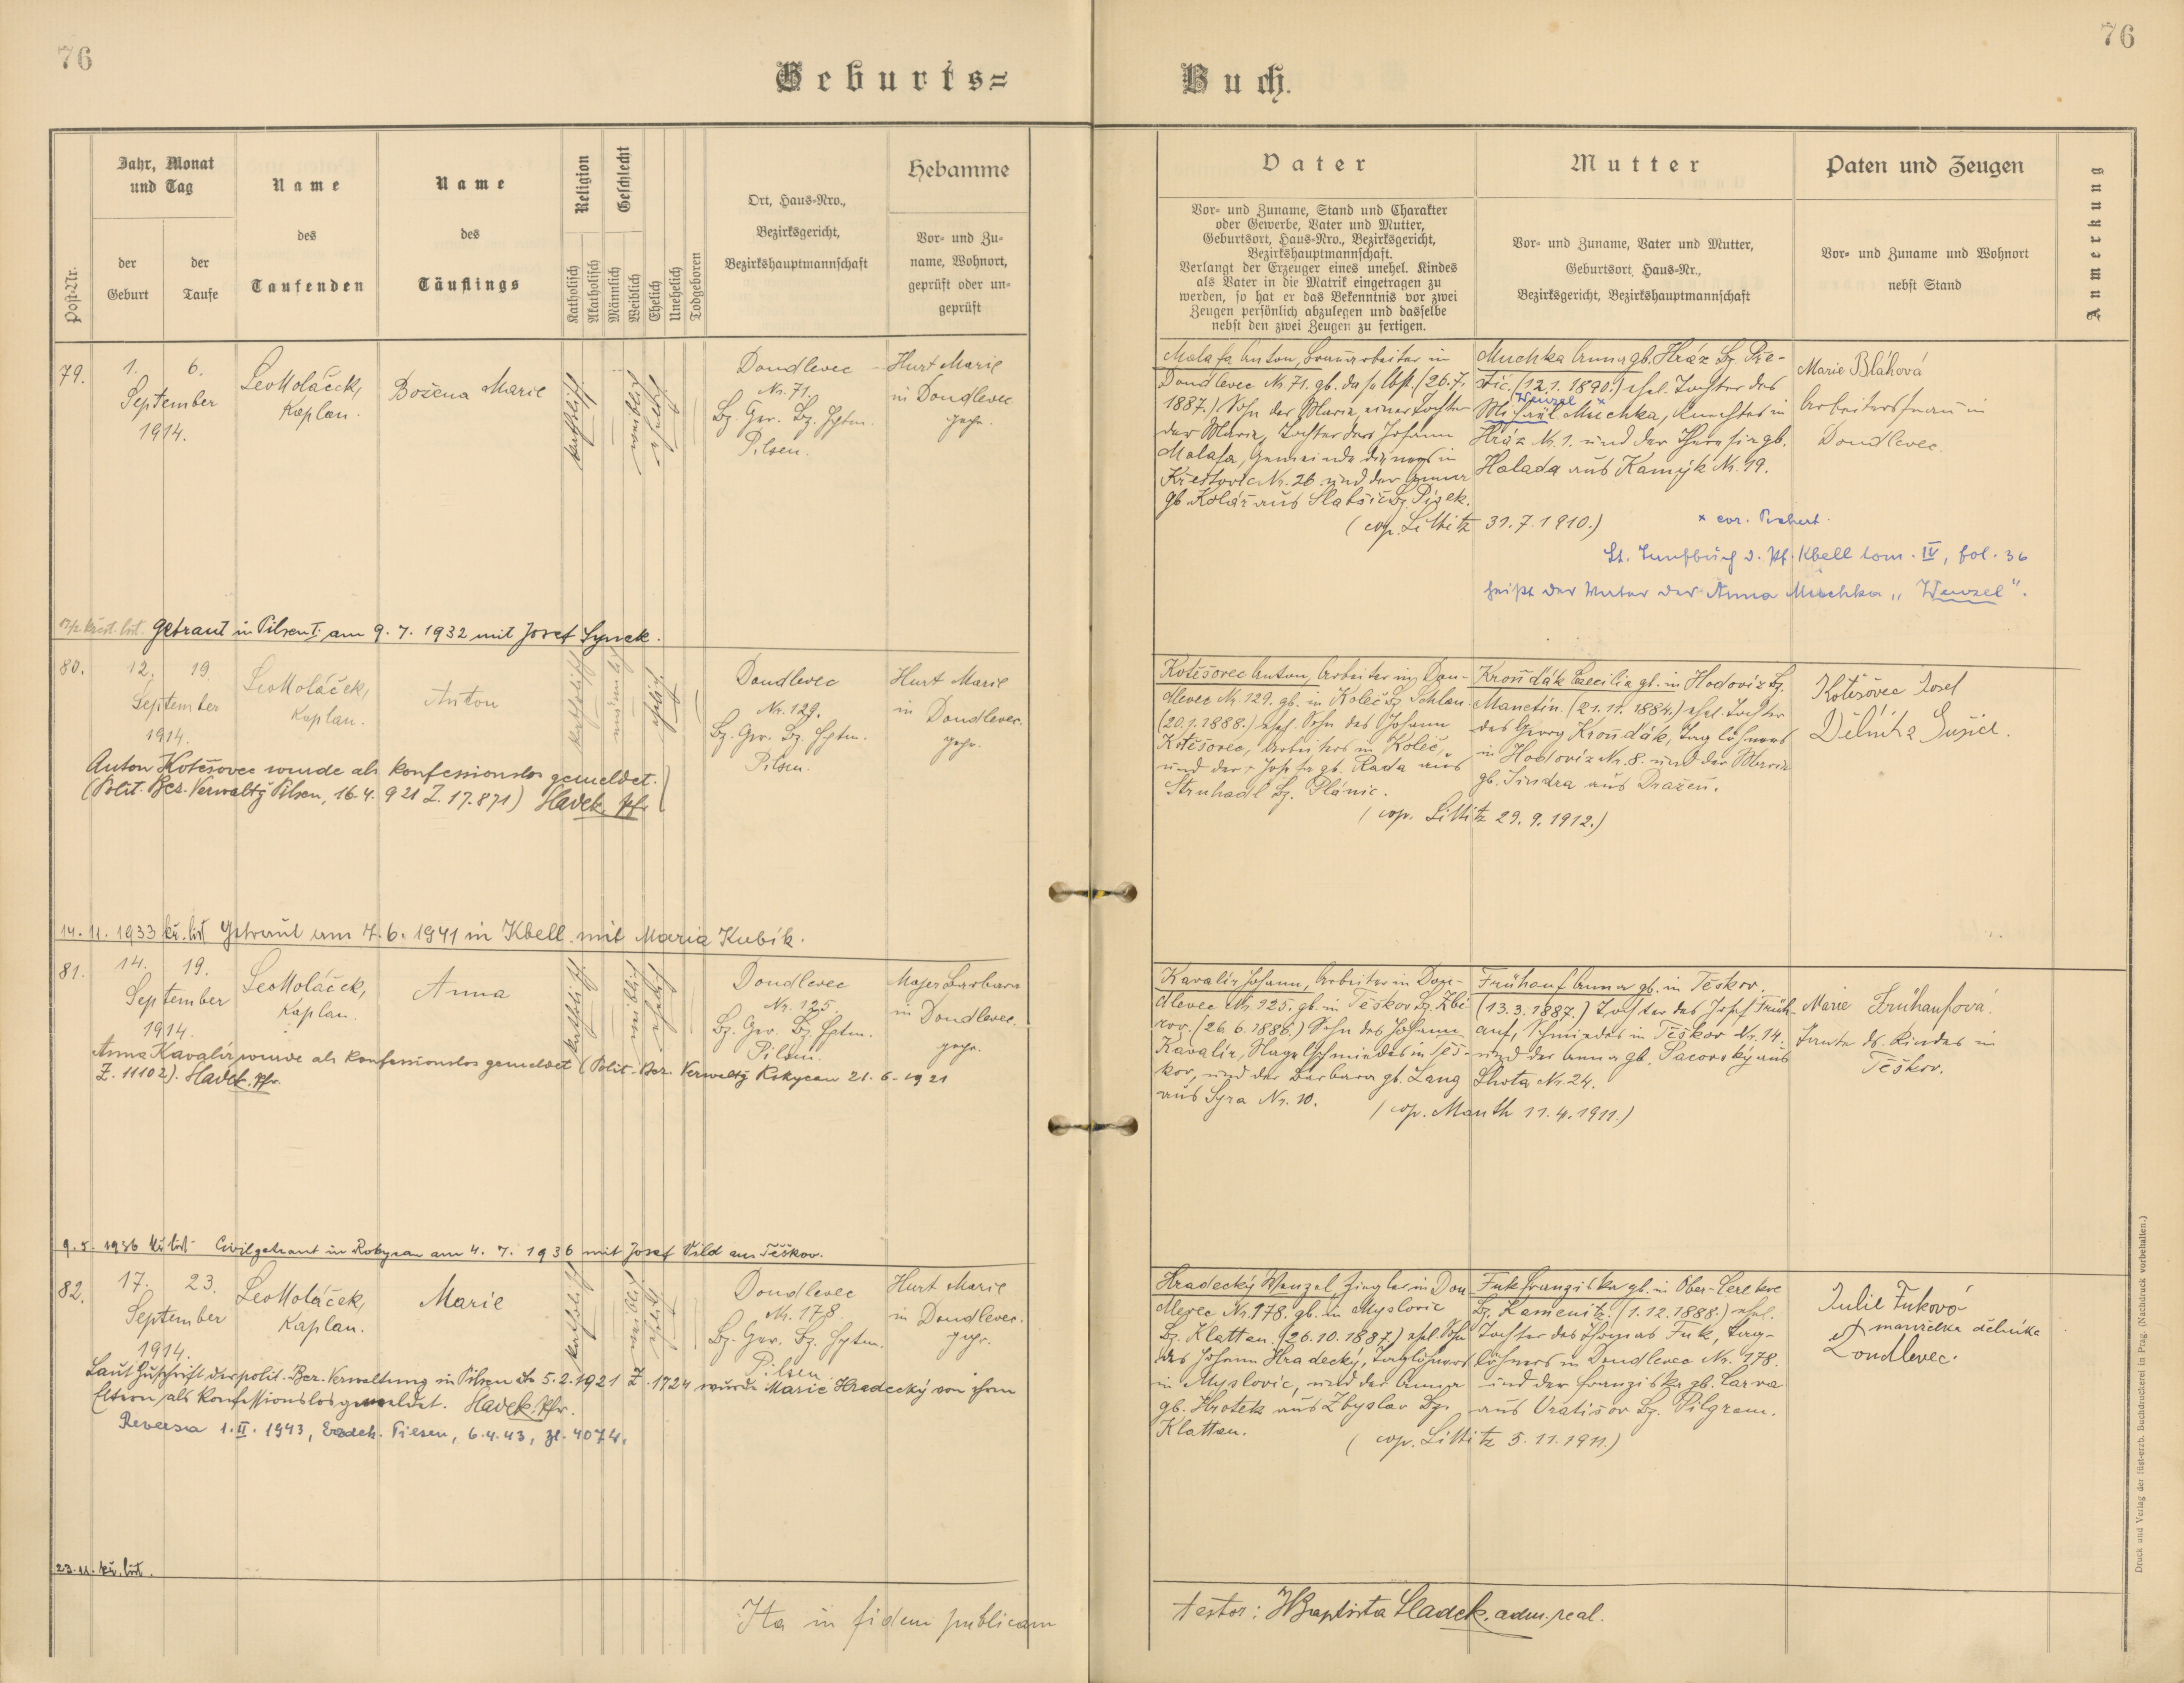 76
76
Geburts=
Buch.
Post-Nr.
Jahr, Monat
und Tag
der
Geburt
der
Taufe
Name
des
Taufenden
Name
des
Täuflings
Religion
Katholisch
Akatholisch
Geschlecht
Männlich
Weiblich
Ehelich
Unehelich
Todgeboren
Ort, Haus=Nro.,
Bezirksgericht,
Bezirkshauptmannschaft
Hebamme
Vor= und Zu=
name, Wohnort,
geprüft oder un=
geprüft
Vater
Vor= und Zuname, Stand und Charakter
oder Gewerbe, Vater und Mutter,
Geburtsort, Haus=Nro., Bezirksgericht,
Bezirkshauptmannschaft.
Verlangt der Erzeuger eines unehel. Kindes
als Vater in die Matrik eingetragen zu
werden, so hat er das Bekenntnis vor zwei
Zeugen persönlich abzulegen und dasselbe
nebst den zwei Zeugen zu fertigen.
Mutter
Vor= und Zuname, Vater und Mutter,
Geburtsort, Haus=Nr.,
Bezirksgericht, Bezirkshauptmannschaft
Paten und Zeugen
Vor= und Zuname und Wohnort
nebst Stand
Anmerkung
79.
1. 6.
September
1914.
Leo Moláček,
Kaplan.
Božena Marie
katholisch
weiblich
ehelich
Doudlevec
Nr. 71.
Bz. Ger. Bz. Hptm.
Pilsen.
Hurt Marie
in Doudlevec
gepr.
Malafa Anton, Brauarbeiter in
Doudlevec Nr. 71. gb. daselbst. (26.7.
1887.) Sohn der Maria, einer Tochter
der Maria, Tochter des Johann
Malafa, Gemeindedieners in
Křestovic Nr. 26 und der Anna
gb. Kolář aus Slabčic Bz. Pisek.
(cop. Littitz 31.7.1910.)
Muchka Anna gb. Hráz Bz. Pře-
štic. (12.1.1890.) ehel. Tochter des
Wenzel x
Michael Muchka, Knechtes in
Hráz Nr. 1. und der Theresia gb.
Halada aus Kamýk Nr. 19.
x cor. Puchert.
Lt. Taufbuch d. Pf. Kbell tom. IV, fol. 36
heißt der Vater der Anna Muchka „Wenzel".
Marie Bláhová
Arbeitersfrau in
Doudlevec.
křest. list. Getraut in Pilsen I. am 9. 7. 1932 mit Josef Synek.
80.
12. 19.
September
1914.
Leo Moláček,
Kaplan.
Anton
katholisch
männlich
ehelich
Doudlevec
Nr. 129.
Bz. Ger. Bz. Hptm.
Pilsen.
Hurt Marie
in Doudlevec.
gepr.
Anton Kotěšovec wurde als konfessionslos gemeldet.
(Polit. Bez. Verwaltg Pilsen, 16.4.921 Z. 17.871) Hladek, Pfr.
Kotěšovec Anton, Arbeiter in Dou-
dlevec Nr. 129. gb. in Koleč Bz. Schlan.
(20.1.1888.) ehel. Sohn des Johann
Kotěšovec, Arbeiters in Koleč,
und der + Josefa gb. Rada aus
Struhadl Bz. Plánic.
(cop. Littitz 29.9.1912.)
Krouďák Caecilia gb. in Hodoviz Bz.
Manetin. (21.11.1884.) ehel. Tochter
des Georg Krouďák, Taglöhners
in Hodoviz Nr. 8. und der Maria
gb. Jindra aus Dražeň.
Kotěšovec Josef
14. 11. 1933 kř. list Getraut am 7. 6. 1941 in Kbell mit Maria Kubík.
81.
14. 19.
September
1914.
Leo Moláček,
Kaplan.
Anna
katholisch
weiblich
ehelich
Doudlevec
Nr. 125.
Bz. Ger. Bz. Hptm.
Pilsen.
Majer Barbara
in Doudlevec.
gepr.
Anna Kavalír wurde als konfessionslos gemeldet (Polit. Bez. Verwaltg Rokycan 21. 6. 1921
Z. 11102). Hladek, Pfr.
Kavalír Johann, Arbeiter in Dou-
dlevec Nr. 125. gb. in Těškov Bz. Zbi-
rov. (26.6.1886.) Sohn des Johann
Kavalír, Nagelschmiedes in Těš-
kov, und der Barbara gb. Lang
aus Syra Nr. 10.
(cop. Mauth 11.4.1911.)
Frühauf Anna gb. in Těškov.
(13.3.1887.) Tochter des Josef Früh-
auf, Schmiedes in Těškov Nr. 14.
und der Anna gb. Pacovský aus
Lhota Nr. 24.
Marie Frühaufová.
Tante ds. Kindes in
Těškov.
9. 5. 1936 kř. list Civilgetraut in Rokycan am 4. 7. 1936 mit Josef Vild aus Těškov.
82.
17. 23.
September
1914.
Leo Moláček,
Kaplan.
Marie
katholisch
weiblich
ehelich
Doudlevec
Nr. 178.
Bz. Ger. Bz. Hptm.
Pilsen
Hurt Marie
in Doudlevec.
gepr.
Laut Zuschrift der polit. Bez. Verwaltung in Pilsen do 5.2.1921 Z. 1724 wurde Marie Hradecký von ihren
Eltern als konfessionslos gemeldet. Hladek, Pfr.
Reversa 1. II. 1943, Erzdek. Pilsen, 6.4.43, Zl. 4074.
Hradecký Wenzel, Ziegler in Dou
dlevec Nr. 178. gb. in Myslovic
Bz. Klattau. (26.10.1887.) ehel. Sohn
des Johann Hradecký, Taglöhners
in Myslovic, und der Anna
gb. Hrotek aus Zbyslav Bz.
Klattau.
(cop. Littitz 5.11.1911.)
Fuk Franziska gb. in Ober-Cerekve
Bz. Kamenitz. (1.12.1888.) ehel.
Tochter des Thomas Fuk, Tag-
löhners in Doudlevec Nr. 178.
und der Franziska gb. Carva
aus Vratišov Bz. Pilgram.
Julie Fuková
manželka dělníka
Doudlevec.
23. 11. kř. list.
Ita in fidem publicam
testor: JBaptista Hladek, adm. real.
Druck und Verlag der fürst-erzb. Buchdruckerei in Prag. (Nachdruck vorbehalten.)